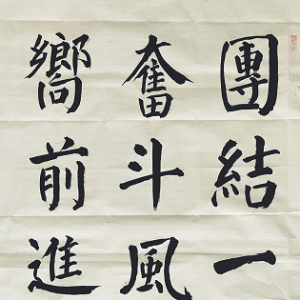 團結一
奮斗風
嚮前進